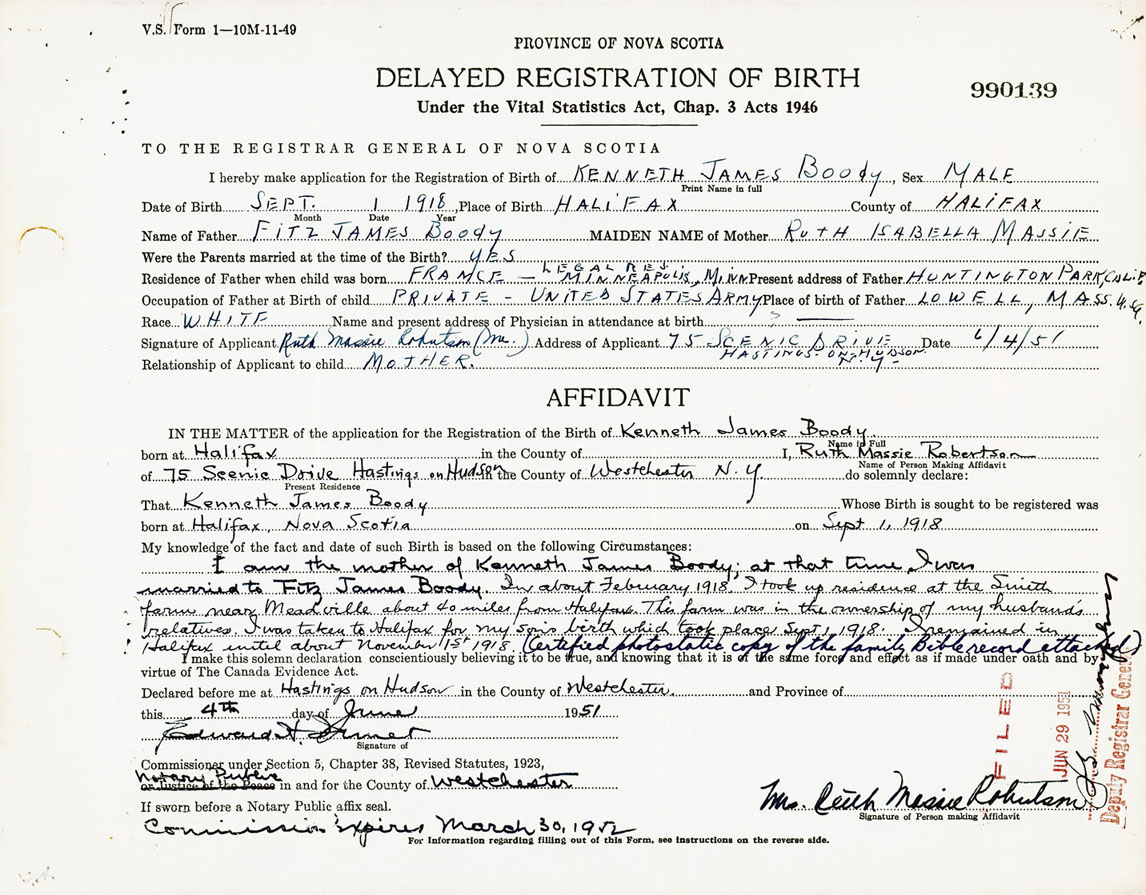 V.S. Form 1—10M-11-49
PROVINCE OF NOVA SCOTIA
DELAYED REGISTRATION OF BIRTH
990139
Under the Vital Statistics Act, Chap. 3 Acts 1946
TO THE REGISTRAR GENERAL OF NOVA SCOTIA
I hereby make application for the Registration of Birth of KENNETH JAMES BOODY, Sex MALE
Print Name in full
Date of Birth SEPT. 1 1918, Place of Birth HALIFAX County of HALIFAX
Month Date Year
Name of Father FITZ JAMES BOODY MAIDEN NAME of Mother RUTH ISABELLA MASSIE
Were the Parents married at the time of the Birth? YES
LEGAL RES:
Residence of Father when child was born FRANCE — MINNEAPOLIS, MINN Present address of Father HUNTINGTON PARK, CALIF
Occupation of Father at Birth of child PRIVATE - UNITED STATES ARMY Place of birth of Father LOWELL, MASS. U.S.A.
Race WHITE Name and present address of Physician in attendance at birth ? —
Signature of Applicant Ruth Massie Robertson (Mrs.) Address of Applicant 75 SCENIC DRIVE Date 6/4/51
HASTINGS-ON-HUDSON
N.Y.
Relationship of Applicant to child MOTHER.
AFFIDAVIT
IN THE MATTER of the application for the Registration of the Birth of Kenneth James Boody
Name in Full
born at Halifax in the County of I, Ruth Massie Robertson
Name of Person Making Affidavit
of 75 Scenic Drive Hastings on Hudson in the County of Westchester N.Y. do solemnly declare:
Present Residence
That Kenneth James Boody Whose Birth is sought to be registered was
born at Halifax, Nova Scotia on Sept 1, 1918
My knowledge of the fact and date of such Birth is based on the following Circumstances:
I am the mother of Kenneth James Boody; at that time, I was
married to Fitz James Boody. In about February 1918, I took up residence at the Smith
farm near Meadville about 40 miles from Halifax. This farm was in the ownership of my husband's
relatives. I was taken to Halifax for my son's birth which took place Sept 1, 1918. I remained in
Halifax until about November 1st 1918. (Certified photostatic copy of the family Bible record attached)
I make this solemn declaration conscientiously believing it to be true, and knowing that it is of the same force and effect as if made under oath and by
virtue of The Canada Evidence Act.
Declared before me at Hastings on Hudson in the County of Westchester. and Province of
this 4th day of June 1951
Edward A.
Signature of
Commissioner under Section 5, Chapter 38, Revised Statutes, 1923,
Notary Public
or Justice of the Peace in and for the County of Westchester
If sworn before a Notary Public affix seal.
Commission Expires March 30, 1952
Mrs. Ruth Massie Robertson
Signature of Person making Affidavit
For Information regarding filling out of this Form, see instructions on the reverse side.
FILED
JUN 29 1951
Deputy Registrar General